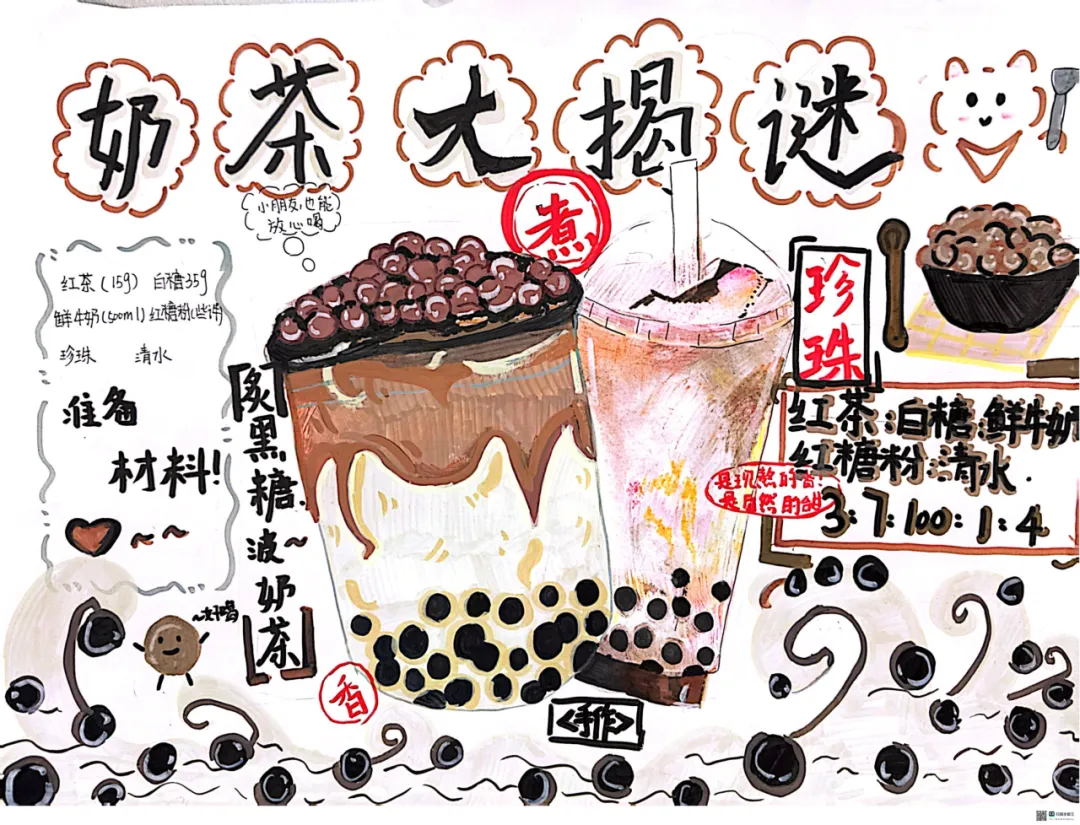 奶茶大揭谜
小朋友也能
放心喝
红茶(15g) 白糖35g
鲜牛奶(500ml) 红糖粉(些许)
珍珠 清水
准备
材料!
「炙」黑糖波~奶茶
煮
珍珠
红茶:白糖:鲜牛奶
红糖粉:清水.
3:7:100:1:4
是现熬的香!
是自然的甜
香
<手作>